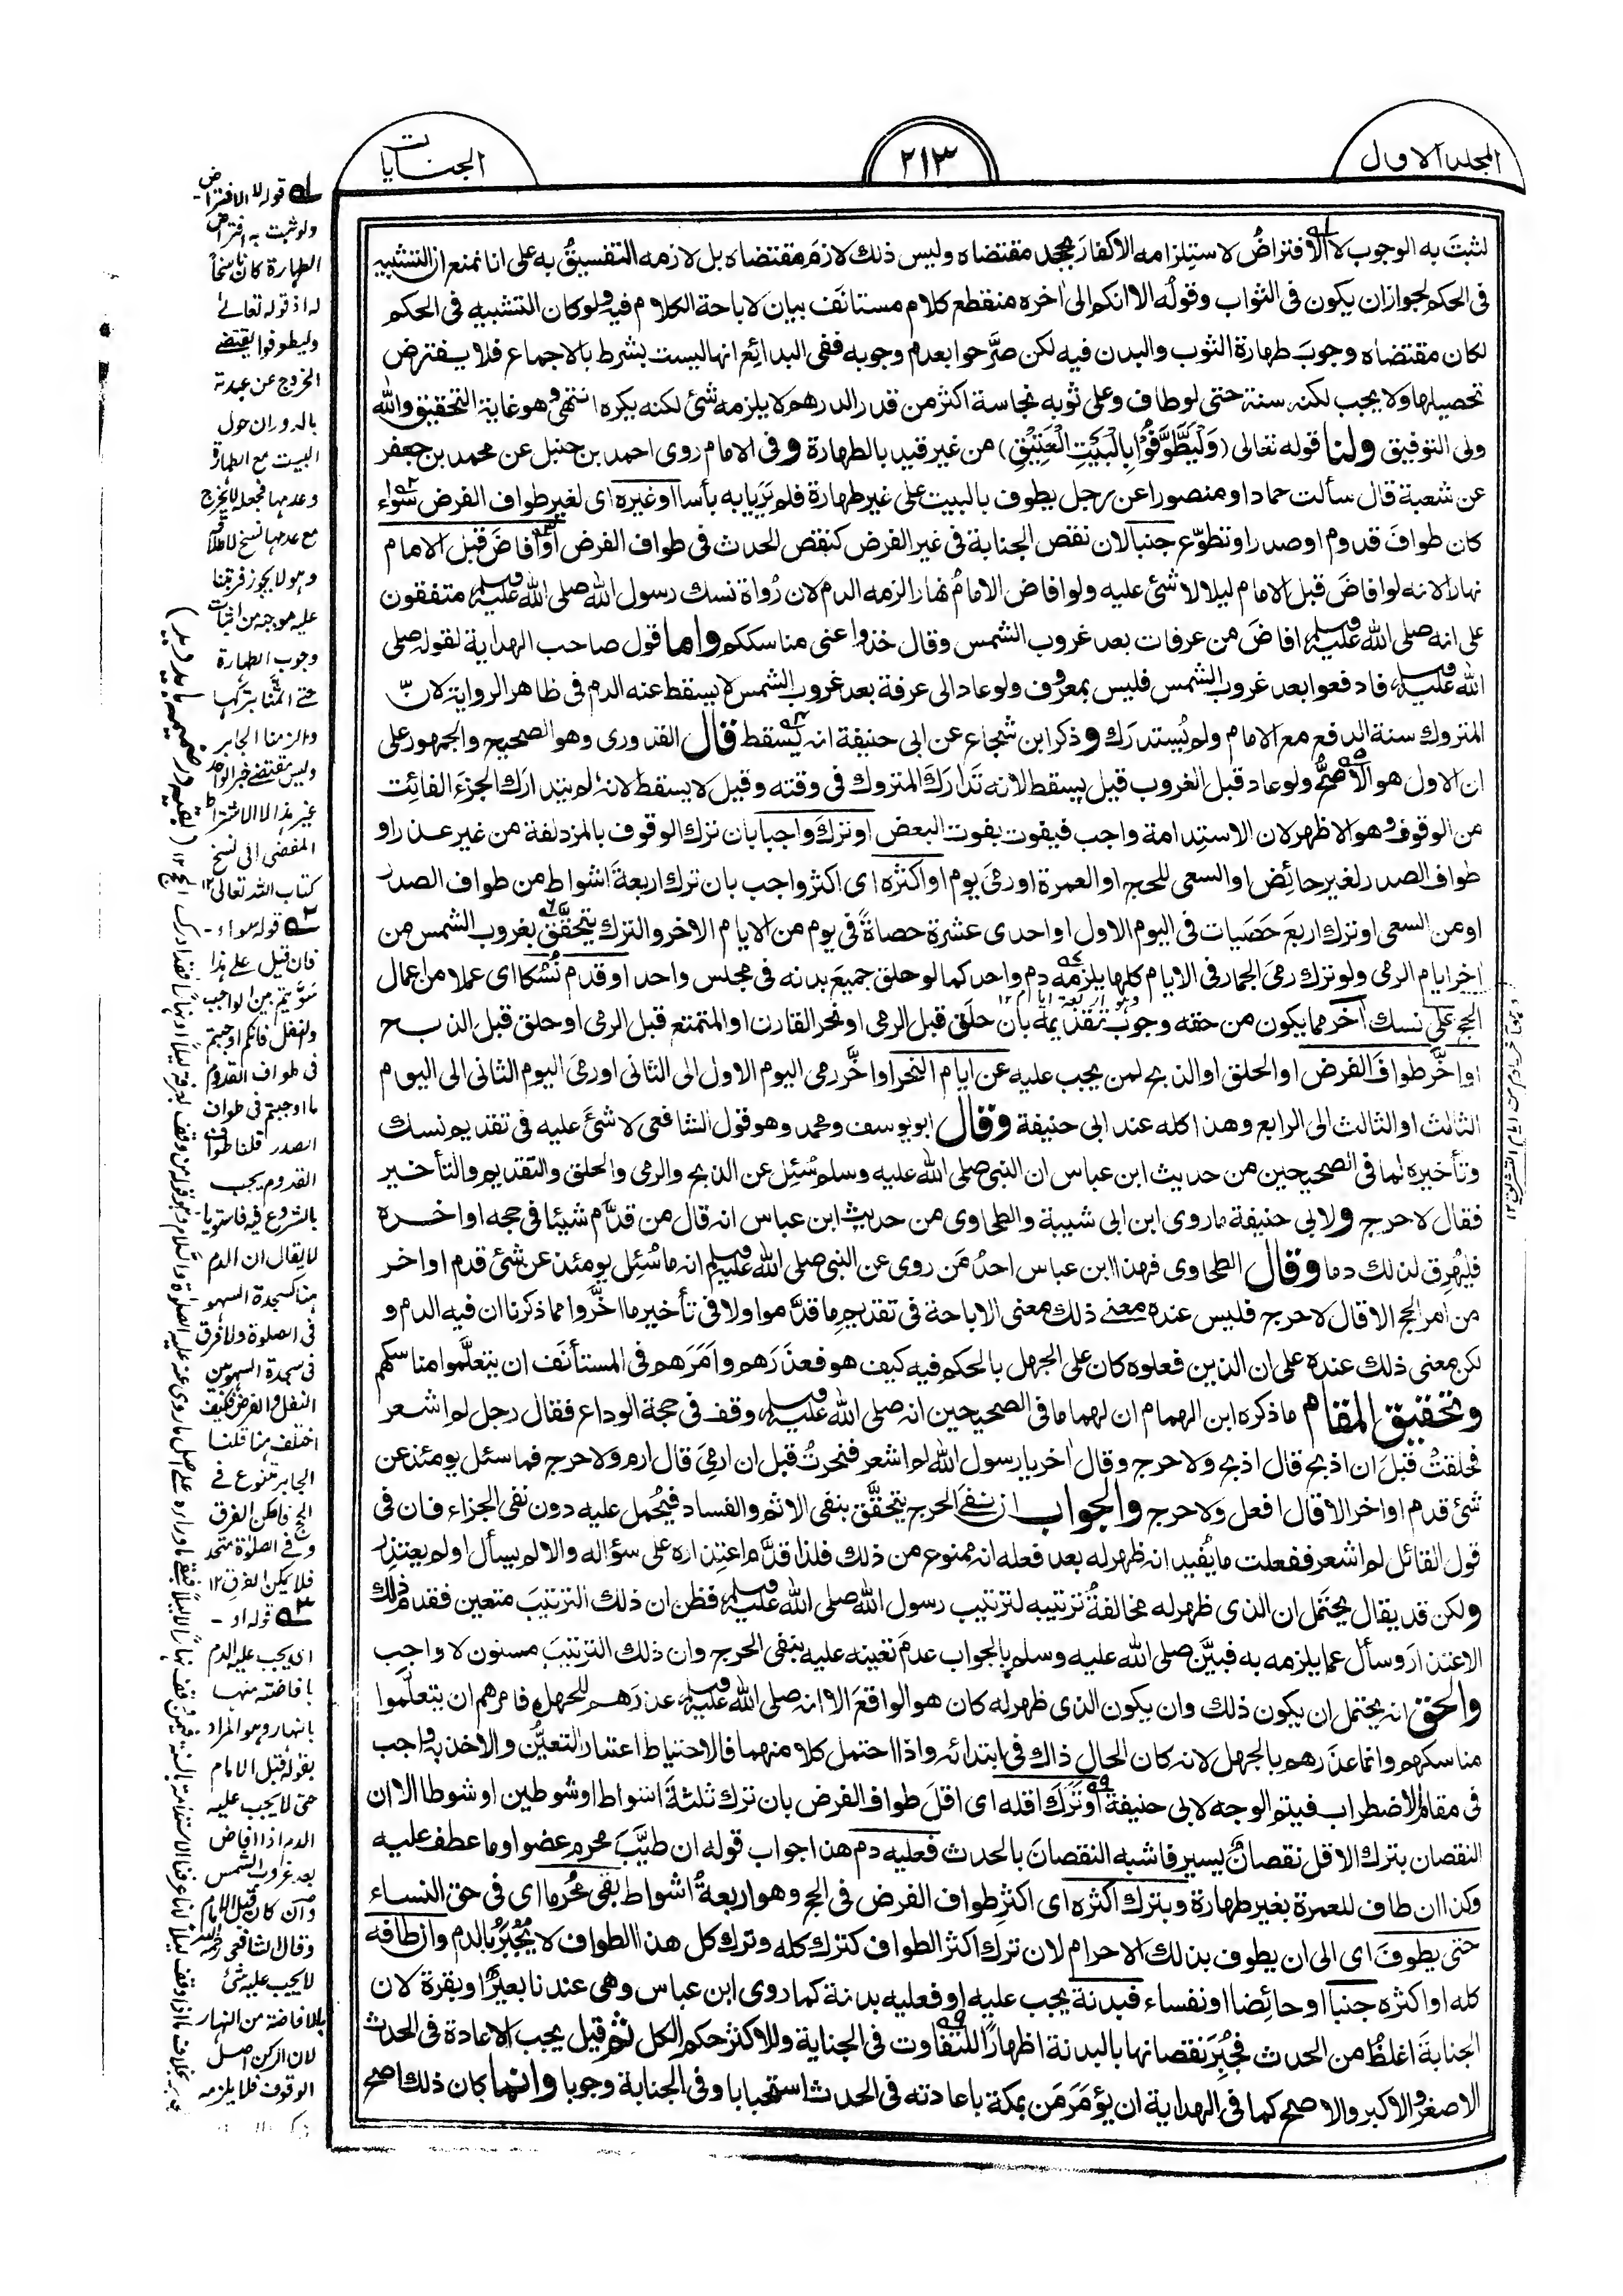 المجلد الاول
٢١٣
الجنايات
لثبت به الوجوب لا الافتراضُ لاستلزامه الاكفارَ بجحد مقتضاه وليس ذلك لازمَ مقتضاه بل لازمه التفسيقُ به على انا نمنع ان التشبيه
فى الحكم لجواز ان يكون فى الثواب وقولُه الا انكم الى اٰخره منقطع كلام مستانَف بيان لاباحة الكلام فيه ولو كان التشبيه فى الحكم
لكان مقتضاه وجوبَ طهارة الثوب والبدن فيه لكن صرَّحوا بعدم وجوبه ففى البدائِع انها ليست بشرط بالاجماع فلا يفترض
تحصيلها ولا يجب لكنه سنة حتى لو طاف وعلى ثوبه نجاسة اكثر من قدر الدرهم لا يلزمه شئ لكنه يكره انتهى وهو غاية التحقيق والله
ولى التوفيق ولنا قوله تعالى (وَلْيَطَّوَّفُوْا بِالْبَيْتِ الْعَتِيْقِ) من غير قيد بالطهارة وفى الامام روى احمد بن حنبل عن محمد بن جعفر
عن شعبة قال سألت حمادا ومنصورا عن رجل يطوف بالبيت على غير طهارة فلم يَرَيا به بأسا او غيره اى لغير طواف الفرض سواء
كان طوافَ قدوم او صدر او تطوّع جنبا لان نقص الجنابة فى غير الفرض كنقص الحدث فى طواف الفرض او افاضَ قبل الامام
نهارا لانه لو افاضَ قبل الامام ليلا لا شئ عليه ولو افاض الامامُ نهارا لزمه الدم لان رُواة نسك رسول الله صلى الله عليه وسلم متفقون
على انه صلى الله عليه وسلم افاضَ من عرفات بعد غروب الشمس وقال خذوا عنى مناسككم واما قول صاحب الهداية لقوله صلى
الله عليه وسلم فادفعوا بعد غروب الشمس فليس بمعروف ولو عاد الى عرفة بعد غروب الشمس لا يسقط عنه الدم فى ظاهر الرواية لانّ
المتروك سنة الدفع مع الامام ولم يُستدرَك وذكر ابن شجاع عن ابى حنيفة انه يسقط قال القدورى وهو الصحيح والجمهور على
ان الاول هو الاصحُّ ولو عاد قبل الغروب قيل يسقط لانه تَدارَكَ المتروك فى وقته وقيل لا يسقط لانه لم يتدارك الجزءَ الفائت
من الوقوف وهو الاظهر لان الاستدامة واجب فيفوت بفوت البعض او تركَ واجبا بان ترك الوقوف بالمزدلفة من غير عذر او
طواف الصدر لغير حائض او السعى للحج او العمرة او رمىَ يوم او اكثرَه اى اكثر واجب بان ترك اربعةَ اشواط من طواف الصدر
او من السعى او ترك اربعَ حَصَيات فى اليوم الاول او احدى عشرة حصاةً فى يوم من الايام الاخر والترك يتحقَّق بغروب الشمس من
اخر ايام الرمى ولو ترك رمىَ الجمار فى الايام كلها يلزمه دم واحد كما لو حلق جميعَ بدنه فى مجلس واحد او قدم نُسُكا اى عملا من اعمال
وهو اربعة ايام ١٢
الحج على نسك اٰخر مما يكون من حقه وجوبُ تقديمه بان حلَق قبل الرمى او نحر القارن او المتمتع قبل الرمى او حلق قبل الذبح
او اخَّر طوافَ الفرض او الحلق او الذبح لمن يجب عليه عن ايام النحر او اخَّر رمى اليوم الاول الى الثانى او رمىَ اليوم الثانى الى اليوم
الثالث او الثالث الى الرابع وهذا كله عند ابى حنيفة وقال ابو يوسف ومحمد وهو قول الشافعى لا شئَ عليه فى تقديم نسك
وتأخيره لما فى الصحيحين من حديث ابن عباس ان النبى صلى الله عليه وسلم سُئِل عن الذبح والرمى والحلق والتقديم والتأخير
فقال لا حرج ولابى حنيفة ما روى ابن ابى شيبة والطحاوى من حديث ابن عباس انه قال من قدَّم شيئا فى حجه او اخره
فليُهرق لذلك دما وقال الطحاوى فهذا ابن عباس احدُ مَن روى عن النبى صلى الله عليه وسلم انه ما سُئِل يومئذ عن شئ قدم او اخر
من امر الحج الا قال لا حرج فليس عنده معنى ذلك معنى الاباحة فى تقديم ما قدَّموا ولا فى تأخير ما اخَّروا مما ذكرنا ان فيه الدم و
لكن معنى ذلك عنده على ان الذين فعلوه كان على الجهل بالحكم فيه كيف هو فعذَرَهم واَمَرَهم فى المستأنَف ان يتعلَّموا مناسكهم
وتحقيق المقام ما ذكره ابن الهمام ان لهما ما فى الصحيحين انه صلى الله عليه وسلم وقف فى حجة الوداع فقال رجل لم اشعر
فحلقتُ قبلَ ان اذبح قال اذبح ولا حرج وقال اٰخر يا رسول الله لم اشعر فنحرتُ قبل ان ارمىَ قال ارم ولا حرج فما سئل يومئذ عن
شئ قدم او اخر الا قال افعل ولا حرج والجواب ان نفىَ الحرج يتحقَّق بنفى الاثم والفساد فيُحمل عليه دون نفى الجزاء فان فى
قول القائل لم اشعر ففعلت ما يُفيد انه ظهر له بعد فعله انه ممنوع من ذلك فلذا قدَّم اعتذاره على سؤاله والا لم يسأل او لم يعتذر
ولكن قد يقال يحتمل ان الذى ظهر له مخالفةُ ترتيبه لترتيب رسول الله صلى الله عليه وسلم فظن ان ذلك الترتيبَ متعين فقدم ذلك
الاعتذارَ وسأل عما يلزمه به فبيَّن صلى الله عليه وسلم بالجواب عدمَ تعينه عليه بنفى الحرج وان ذلك الترتيبَ مسنون لا واجب
والحق انه يحتمل ان يكون ذلك وان يكون الذى ظهر له كان هو الواقعَ الا انه صلى الله عليه وسلم عذرَهم للجهل فامرهم ان يتعلَّموا
مناسكهم وانما عذرهم بالجهل لانه كان الحال ذاك فى ابتدائه واذا احتمل كلا منهما فالاحتياط اعتبار التعيُّن والاخذ به واجب
فى مقام الاضطراب فيتم الوجه لابى حنيفة او تَرَكَ اقله اى اقلَ طواف الفرض بان ترك ثلثةَ اشواط او شوطين او شوطا الا ان
النقصان بترك الاقل نقصانٌ يسير فاشبه النقصانَ بالحدث فعليه دم هذا جواب قوله ان طيَّبَ محرم عضوا وما عطف عليه
وكذا ان طاف للعمرة بغير طهارة وبترك اكثره اى اكثرِ طواف الفرض فى الحج وهو اربعةُ اشواط بقى مُحرما اى فى حق النساء
حتى يطوفَ اى الى ان يطوف بذلك الاحرام لان ترك اكثر الطواف كترك كله وترك كل هذا الطواف لا يُجبَر بالدم وان طافه
كله او اكثره جنبا او حائضا او نفساء فبدنة يجب عليه او فعليه بدنة كما روى ابن عباس وهى عندنا بعيرٌ او بقرة لان
الجنابةَ اغلظُ من الحدث فجُبِرَ نقصانها بالبدنة اظهارًا للتفاوت فى الجناية وللاكثر حكم الكل ثم قيل يجب الاعادة فى الحدث
الاصغر والاكبر والاصح كما فى الهداية ان يؤمَرَ مَن بمكة باعادته فى الحدث استحبابا وفى الجنابة وجوبا وانما كان ذلك اصح
قوله لا الافتراض -
ولو ثبت به افتراض
الطهارة كان ناسخاً
له اذ قوله تعالى
وليطوفوا يقتضى
الخروج عن عهدته
بالدوران حول
البيت مع الطهارة
وعدمها فجعله لا يخرج
مع عدمها نسخ لاطلاقه
وهو لا يجوز فرتبنا
عليه موجبه من اثبات
وجوب الطهارة
حتى اثمنا بتركها
والزمنا الجابر
وليس مقتضى خبر الواحد
غير هذا لا الاشتراط
المفضى الى نسخ
كتاب الله تعالى ١٢
قوله سواء -
فان قيل على هذا
سوّيتم بين الواجب
والنفل فانكم اوجبتم
فى طواف القدوم
ما اوجبتم فى طواف
الصدر قلنا طواف
القدوم يجب
بالشروع فيه فاستويا -
لا يقال ان الدم
هنا كسجدة السهو
فى الصلوة ولا فرق
فى سجدة السهو بين
النفل والفرض فكيف
اختلف هنا قلنا
الجابر متنوع فى
الحج فامكن الفرق
وفى الصلوة متحد
فلا يمكن الفرق ١٢
قوله او -
اى يجب عليه الدم
بافاضته منها
بالنهار وهو المراد
بقوله قبل الامام
حتى لا يجب عليه
الدم اذا افاض
بعد غروب الشمس
وان كان قبل الامام
وقال الشافعى رحمه الله
لا يجب عليه شئ
بالافاضة من النهار
لان الركن اصل
الوقوف فلا يلزمه